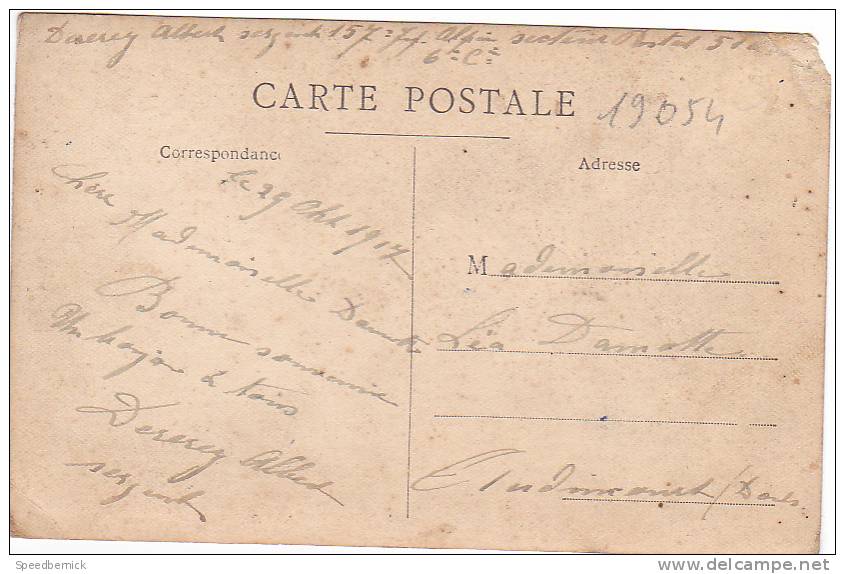 Dererey Albert sergent 157e Inf. Alpin secteur Postal 51
6e Cie
CARTE POSTALE
19054
Correspondance
Adresse
le 29 Obt 1917
Chère Mademoiselle Damotte
Bonne
Un bonjour à tous
Dererey Albert
sergent
Mademoiselle
Léa Damotte
Audincourt (Doubs
Speedbernick
www.delcampe.net